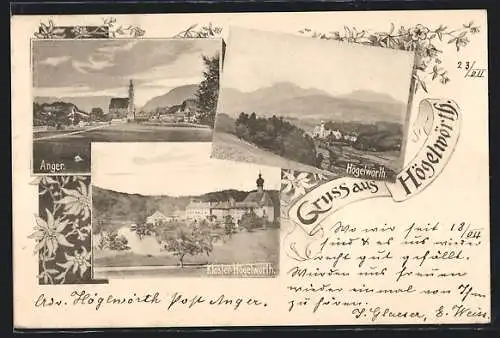 23/VII
Anger.
Högelwörth.
Kloster Högelwörth.
Gruss aus Högelwörth.
Wo wir seit 13/VII
sind & es uns wieder
recht gut gefällt.
Würden uns freuen
wieder einmal von Ihnen
zu hören.
J. Glaeser, E. Weiss.
Adr. Höglwörth Post Anger.